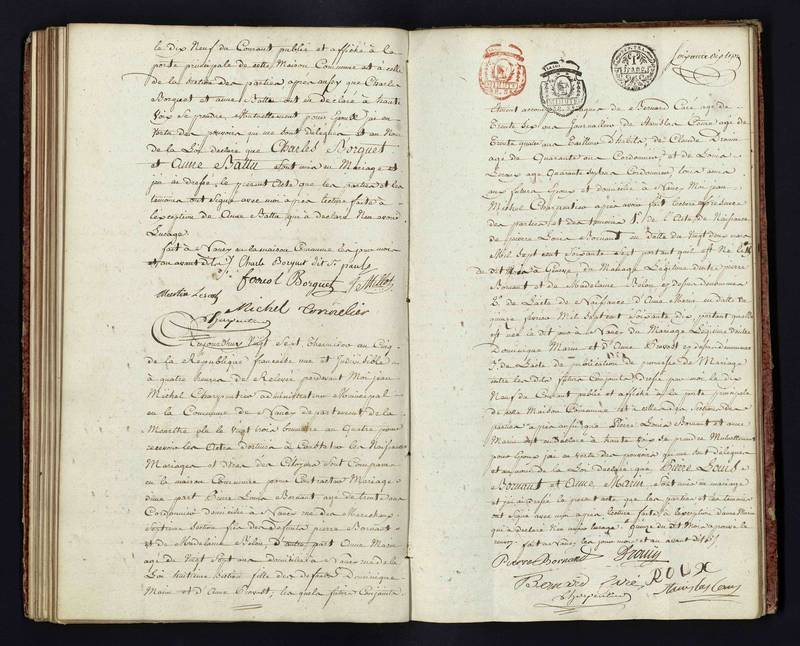 le dix Neuf du Courant publié et affiché à la
porte principale de cette Maison Commune et à celle
de la Section des parties après aussy que Charles
Borquet et Anne Battu ont eu déclaré à haute
Voix se prendre Mutuellement pour Epoux j'ai en
Vertu des pouvoirs qui me sont délégués et au Nom
de la Loi déclaré que Charles Borquet
et Anne Battu sont unis en Mariage et
j'ai dressé le présent Acte que les parties et les
témoins ont signé avec moi après lecture faite à
l'exception de Anne Battu qui a déclaré N'en avoir
l'usage
fait à Nancy en la maison Commune les jour mois
et an avant dits Charle Borquet dit St paul
ferreol Borquet J Millot
Michel Cornelier
Charpentier
Aujourdhuy Vingt Sept Brumaire an Cinq
de la République française une et Indivisible
à quatre heures de Relevée pardevant Moi jean
Michel Charpentier administrateur Municipal
en la Commune de Nancy département de la
Meurthe élu le Vingt trois brumaire an Quatre pour
recevoir les Actes destinés à Constater les Naissances
Mariages et Décès des Citoyens sont Comparus
en la maison Commune pour Contracter Mariage
d'une part Pierre Louis Bornant agé de trente ans
Cordonnier domicilié à Nancy rue des Maréchaux
Section fils des défunts pierre Bornant
et de Madelaine Bolon D'autre part Anne Marin
agée de Vingt Sept ans domiciliée à Nancy rue de la
Loi huitieme Section fille des défunts Dominique
Marin et d'Anne Prevost, lesquels futurs Conjoints
1
étaient accompagnés de Bernard Caré agé de
Trente Six ans journallier de Stanislas Cony agé de
Trente quatre ans Tailleur d'habits, de Claude Drouin
agé de Quarante ans Cordonnier, et de Louis
Leroux agé Quarante Sept ans Cordonnier, tous amis
aux futurs Epoux et domiciliés à Nancy Moi jean
Michel Charpentier après avoir fait lecture en présence
des parties et des témoins 1° de l'Acte de Naissance
de pierre Louis Bornant en datte du Vingt deux mars
Mil Sept cent Soixante Sept portant qu'il est Né le
du dit Mois à du Mariage Légitime d'entre pierre
Bornant et de Madelaine Bolon ey dessus dénommés
2° de l'acte de Naissance d'Anne Marin en datte du
quinze février Mil Sept cent Soixante dix portant qu'elle
est née le dit mois à Nancy du Mariage Légitime d'entre
Dominique Marin et d'Anne Prevost ey dessus dénommés
3° de l'acte de publication de promesse de Mariage
entre les dits futurs Conjoints Dressé par moi le dix
Neuf du Courant publié et affiché à la porte principale
de cette Maison Commune et à celle de la Section des
parties après aussy que Pierre Louis Bornant et Anne
Marin ont eu déclaré à haute Voix se prendre Mutuellement
pour Epoux j'ai en vertu des pouvoirs qui me sont délégués
et au nom de la Loi déclaré que Pierre Louis
Bornant et Anne Marin sont unis en mariage
et j'ai dressé le present acte que les parties et les témoins
ont signé avec moi après lecture faite à l'exception d'Anne Marin
qui a déclaré N'en avoir l'usage, quinze du dit Mois approuvé le
renvoy fait à Nancy les jour mois et an avant dits
Pierre Bornand Drouin
Bernard Caré ROUX
Charpentier Stanislas Cony